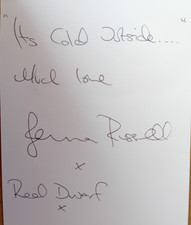 "Its Cold Outside....."
Much love
Jenna Russell
x
Red Dwarf
x